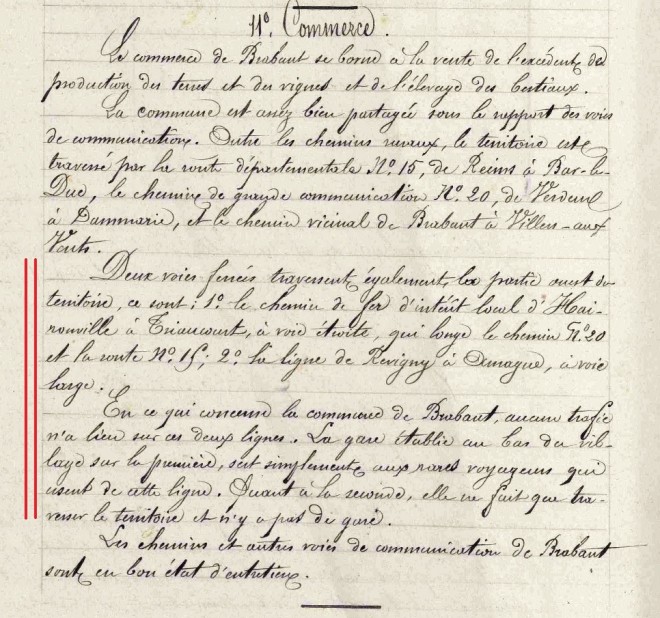 11º Commerce.
Le commerce de Brabant se borne à la vente de l'excédent des
production des terres et des vignes et de l'élevage des bestiaux.
La commune est assez bien partagée sous le rapport des voies
de communication. Outre les chemins ruraux, le territoire est
traversé par la route départementale Nº 15, de Reims à Bar-le-
Duc, le chemin de grande communication Nº 20, de Verdun
à Dammarie, et le chemin vicinal de Brabant à Villers-aux
Vents.
Deux voies ferrées traversent également la partie ouest du
territoire, ce sont: 1º le chemin de fer d'intérêt local d'Hai-
ronville à Triaucourt, à voie étroite, qui longe le chemin Nº 20
et la route Nº 15; 2º la ligne de Revigny à Amagne, à voie
large.
En ce qui concerne la commune de Brabant, aucun trafic
n'a lieu sur ces deux lignes. La gare établie au bas du vil-
lage sur la première, sert simplement aux rares voyageurs qui
usent de cette ligne. Quant à la seconde, elle ne fait que tra-
verser le territoire et n'y a pas de gare.
Les chemins et autres voies de communication de Brabant
sont en bon état d'entretien.